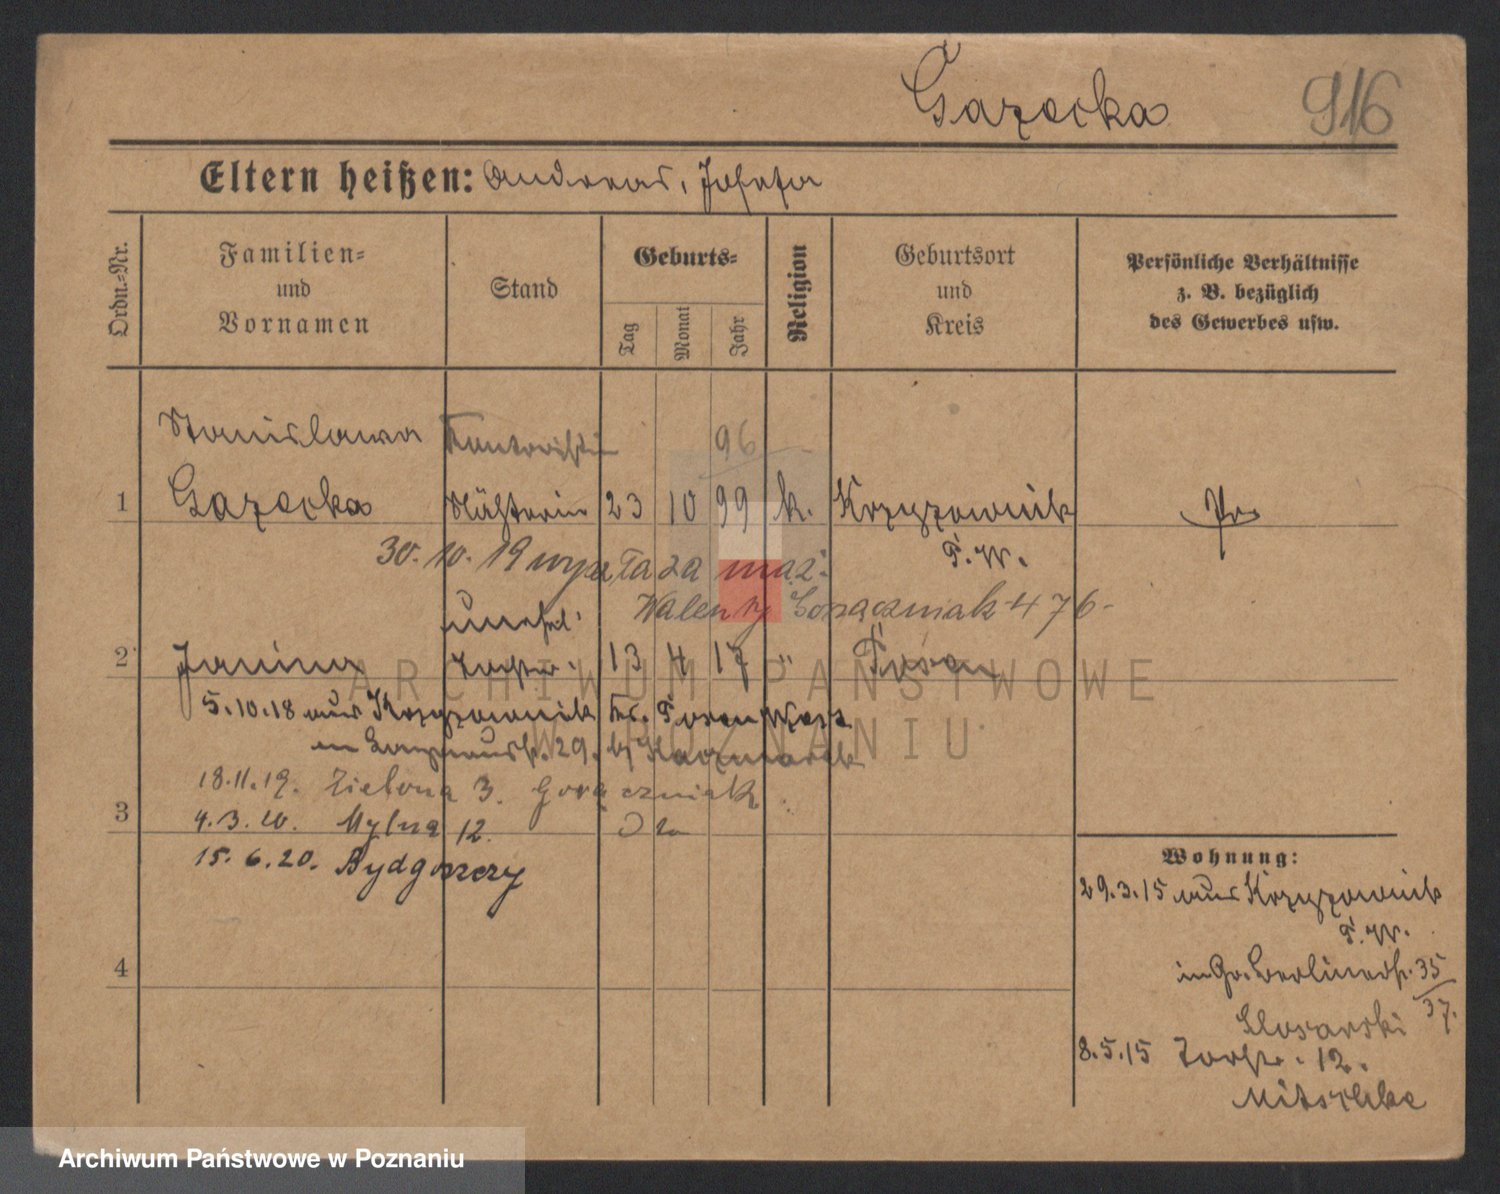 Gazecka 916
Eltern heißen: Andreas, Josefa
Ordn.=Nr.
Familien=
und
Vornamen
Stand
Geburts=
Tag
Monat
Jahr
Religion
Geburtsort
und
Kreis
Persönliche Verhältnisse
z. B. bezüglich
des Gewerbes usw.
Stanislawa Kontoristin 96
1 Gazecka Näherin 23 10 99 k. Krzyzownik Pr
P. W.
30.10.19 wyszła za mąż
Walenty Gorączniak 476
unehel.
2 Janina Tochter 13 4 17 " Posen
5.10.18 aus Krzyzownik Kr. Posen West
29. b/ Kaczmarek
18.11.19. Zielona 3. Gorączniak
3
4.3.20. Mylna 12.
15.6.20. Bydgoszczy
4
Wohnung:
29.3.15 aus Krzyzownik
P. W.
in Gr. Berlinerstr. 35/37.
8.5.15 12.
Mitschke
ARCHIWUM PAŃSTWOWE
W POZNANIU
Archiwum Państwowe w Poznaniu